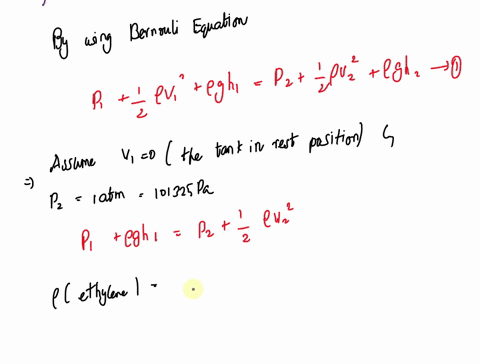 By using Bernouli Equation
P₁ + 1/2 ρv₁² + ρgh₁ = P₂ + 1/2 ρv₂² + ρgh₂ → ①
Assume v₁=0 (the tank in rest position) &
⇒ P₂ = 1atm = 101325 Pa
P₁ + ρgh₁ = P₂ + 1/2 ρv₂²
ρ(ethylene) =